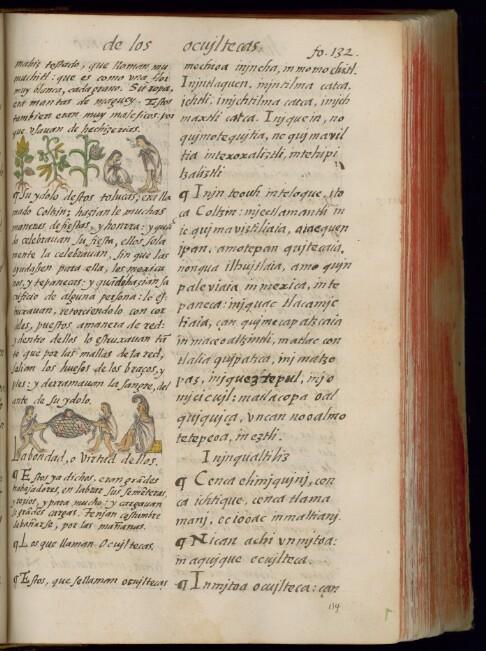 de los ocujltecas. fo. 132.
mahiz tostado, que llaman, mu
muchitl: que es como vna flor
muy blanca, cada grano. Su ropa,
era mantas de maguey. Estos
tambien eran muy maleficos: por
que vsauan de hechizerias.
¶ Su ydolo destos toluca, era lla
mado Coltzin: hazianle muchas
maneras de fiestas, y honrra: y quando
la celebrauan su fiesta, ellos sola
mente la celebrauan, sin que las
ayudassen para ella, las mexica
nos, y tepanecas: y quando hazian sa
crificio de alguna persona: lo es
truxauan, retorciendolo con cor
deles, puestos a manera de red:
y dentro dellos lo estruxauan tan
to que por las mallas de la red,
salian los huesos de los braços, y
pies: y derramauan la sangre, del
ante de su ydolo.
La bondad, o virtud dellos.
¶ Estos ya dichos, eran grandes
trabajadores, en labrar sus sementeras,
recios, y para mucho: y cargauan
grandes cargas. Tenjan costumbre
de bañarse, por las mañanas.
¶ Los que llaman. Ocujltecas.
¶ Estos, que se llaman ocujltecas
mechroa injncha, in momochitl.
Injntlaquen, injntilma catca,
ichtli, injchtilma catca, imjch
maxtli catca. Injque in, no
qujmotequjtia, no qujmavil
tia intexoxaliztli, intehipi
tzaliztli
¶ Injn teouh intoloque, ito
ca Coltzin: mjectlamantli in
ic qujmaviztiliaia, aiaequen
ipan: amotepan qujteçaia,
nonqua ilhujtlaia, amo qujn
paleviaia in mexica, in te
paneca: injquac tlacamjc
tiaia, çan qujmecapatzcaia
in maceoaltzintli, matlac con
tlalia qujpatzca, inj matzo
paz, injquequetztepul, inj o
mjcicujl: matlacopa oal
qujqujça, vncan nooalmo
tetepeoa, in eztli.
Injnqualtiliz
¶ Cenca elimjqujnj, cen
ca ichtique, cenca tlama
manj, ceiooac inmaltianj.
¶ Nican achi vnmjtoa:
in aqujque ocujlteca.
¶ Injmjtoa ocujlteca: çan